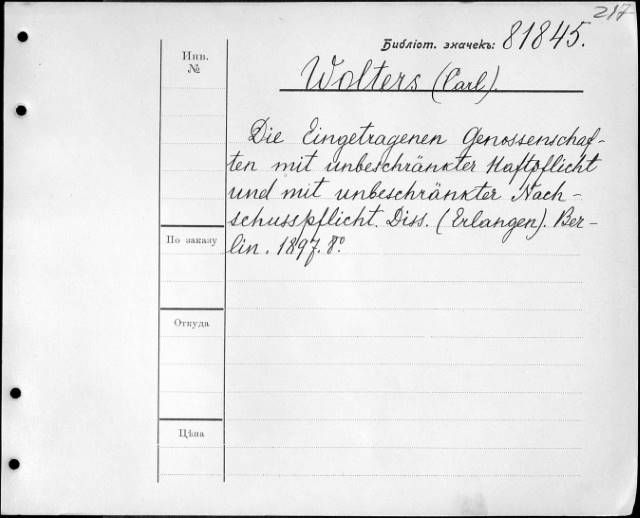 217
Библіот. значекъ: 81845.
Инв.
№
Wolters (Carl).
Die Eingetragenen Genossenschaf-
ten mit unbeschränkter Haftpflicht
und mit unbeschränkter Nach-
schusspflicht. Diss. (Erlangen). Ber-
lin. 1897. 8°.
По заказу
Откуда
Цѣна